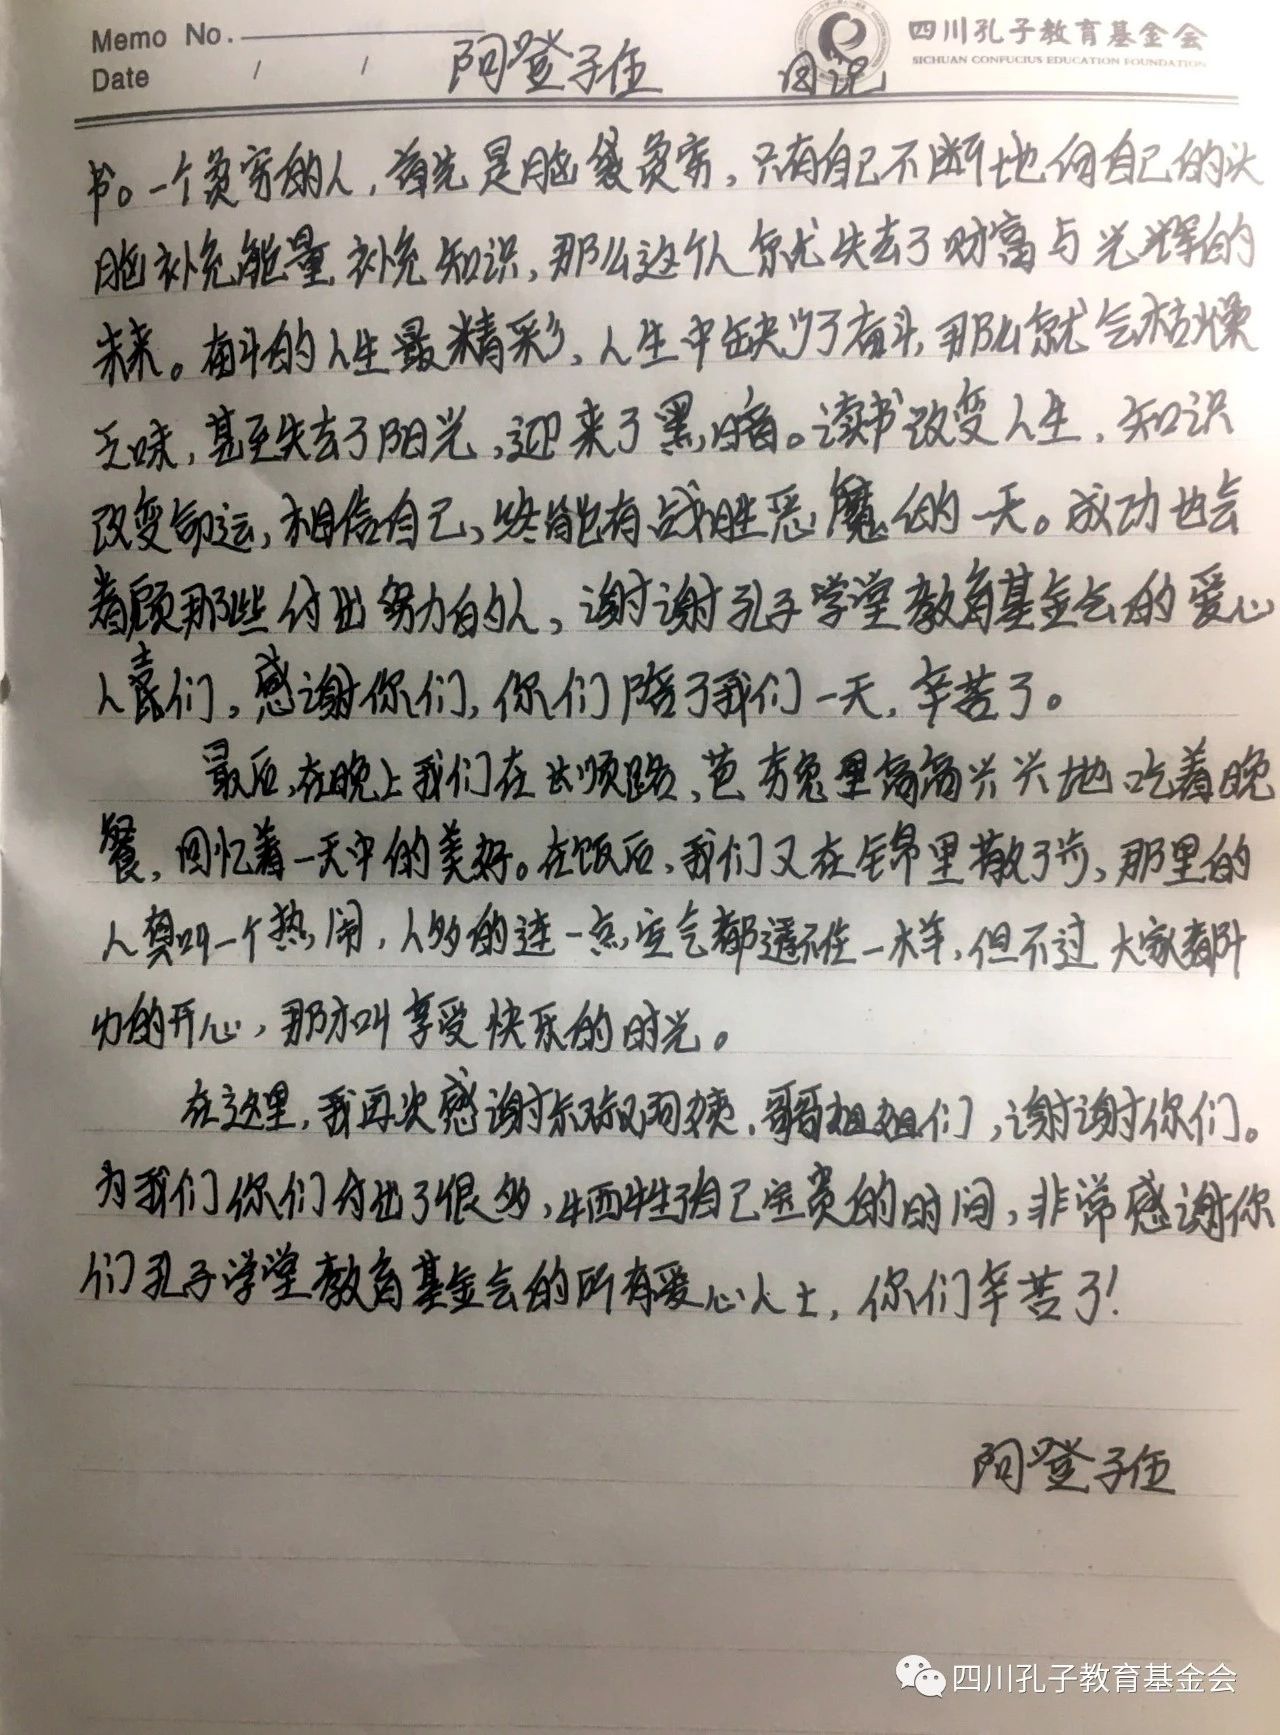 Memo No.
四川孔子教育基金会
SICHUAN CONFUCIUS EDUCATION FOUNDATION
Date / /
阿登子伍
书。一个贫穷的人，首先是脑袋贫穷，只有自己不断地向自己的头
脑补充能量，补充知识，那么这个人你尤失去了财富与光辉的
未来。奋斗的人生最精彩，人生中缺少了奋斗，那么你就会枯燥
乏味，甚至失去了阳光，迎来了黑暗。读书改变人生，知识
改变命运，相信自己，终能有战胜恶魔的一天。成功也会
眷顾那些付出努力的人，谢谢孔子学堂教育基金会的爱心
人员们，感谢你们，你们陪了我们一天，辛苦了。
最后，在晚上我们在长顺路，芭夯兔里高高兴兴地吃着晚
餐，回忆着一天中的美好。在饭后，我们又在锦里散了步，那里的
人真叫一个热闹，人多的连一点空气都透不住一样，但不过大家都叶
力的开心，那才叫享受快乐的时光。
在这里，我再次感谢叔叔阿姨，哥哥姐姐们，谢谢你们。
为我们你们付出了很多，牺牲了自己宝贵的时间，非常感谢你
们孔子学堂教育基金会的所有爱心人士，你们辛苦了！
阿登子伍
四川孔子教育基金会